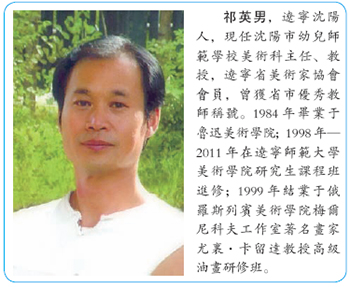 祁英男，遼寧沈陽
人，現任沈陽市幼兒師
範學校美術科主任、教
授，遼寧省美術家協會
會員，曾獲省市優秀教
師稱號。1984年畢業于
魯迅美術學院；1998年—
2011年在遼寧師範大學
美術學院研究生課程班
進修；1999年結業于俄
羅斯列賓美術學院梅爾
尼科夫工作室著名畫家
尤裏·卡留達教授高級
油畫研修班。